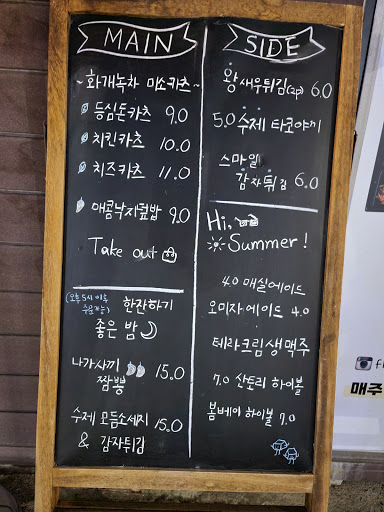 MAIN
~ 화개녹차 미소카츠 ~
등심돈카츠 9.0
치킨카츠 10.0
치즈카츠 11.0
매콤낙지덮밥 9.0
Take out
한잔하기
좋은 밤
나가사끼 짬뽕 15.0
수제 모듬소세지 15.0
& 감자튀김
SIDE
왕새우튀김(2p) 6.0
5.0 수제 타코야끼
스마일
감자튀김 6.0
Hi,
Summer!
4.0 매실에이드
오미자에이드 4.0
테라크림생맥주
7.0 산토리 하이볼
봄베이 하이볼 7.0
매주